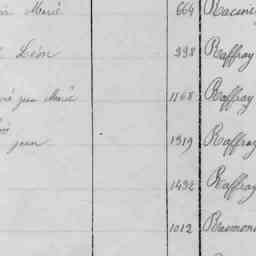 Marie 664 Racine
Léon 998 Raffray
Jean Marie 1168 Raffray
Jean 1919 Raffray
1492 Raffray
1012